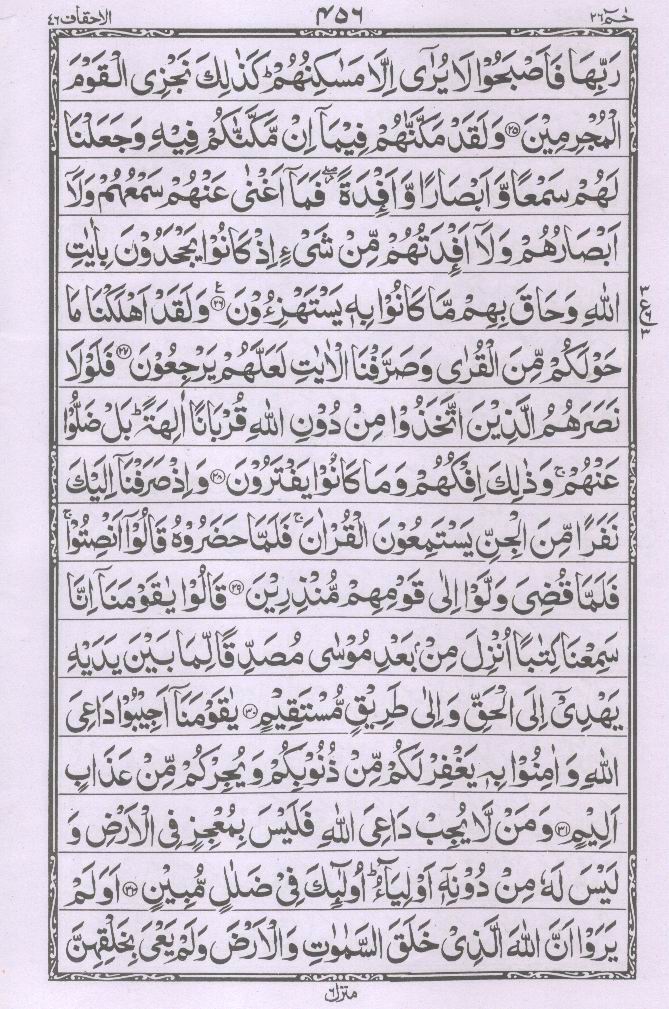 حٰمٓ ٢٦ ٤٥٦ الاحقاف ٤٦
رَبِّهَا فَاَصْبَحُوْا لَا يُرٰٓى اِلَّا مَسٰكِنُهُمْ ؕ كَذٰلِكَ نَجْزِى الْقَوْمَ
الْمُجْرِمِيْنَ ﴿٢٥﴾ وَلَقَدْ مَكَّنّٰهُمْ فِيْمَآ اِنْ مَّكَّنّٰكُمْ فِيْهِ وَجَعَلْنَا
لَهُمْ سَمْعًا وَّاَبْصَارًا وَّاَفْـِٕدَةً ۖ فَمَآ اَغْنٰى عَنْهُمْ سَمْعُهُمْ وَلَآ
اَبْصَارُهُمْ وَلَآ اَفْـِٕدَتُهُمْ مِّنْ شَىْءٍ اِذْ كَانُوْا يَجْحَدُوْنَ بِاٰيٰتِ
اللّٰهِ وَحَاقَ بِهِمْ مَّا كَانُوْا بِهٖ يَسْتَهْزِءُوْنَ ﴿٢٦﴾ ع وَلَقَدْ اَهْلَكْنَا مَا
٣ ع ٦ ٣
حَوْلَكُمْ مِّنَ الْقُرٰى وَصَرَّفْنَا الْاٰيٰتِ لَعَلَّهُمْ يَرْجِعُوْنَ ﴿٢٧﴾ فَلَوْلَا
نَصَرَهُمُ الَّذِيْنَ اتَّخَذُوْا مِنْ دُوْنِ اللّٰهِ قُرْبَانًا اٰلِهَةً ؕ بَلْ ضَلُّوْا
عَنْهُمْ ۚ وَذٰلِكَ اِفْكُهُمْ وَمَا كَانُوْا يَفْتَرُوْنَ ﴿٢٨﴾ وَاِذْ صَرَفْنَآ اِلَيْكَ
نَفَرًا مِّنَ الْجِنِّ يَسْتَمِعُوْنَ الْقُرْاٰنَ ۚ فَلَمَّا حَضَرُوْهُ قَالُوْٓا اَنْصِتُوْا ۚ
فَلَمَّا قُضِىَ وَلَّوْا اِلٰى قَوْمِهِمْ مُّنْذِرِيْنَ ﴿٢٩﴾ قَالُوْا يٰقَوْمَنَآ اِنَّا
سَمِعْنَا كِتٰبًا اُنْزِلَ مِنْۢ بَعْدِ مُوْسٰى مُصَدِّقًا لِّمَا بَيْنَ يَدَيْهِ
يَهْدِىْٓ اِلَى الْحَقِّ وَاِلٰى طَرِيْقٍ مُّسْتَقِيْمٍ ﴿٣٠﴾ يٰقَوْمَنَآ اَجِيْبُوْا دَاعِىَ
اللّٰهِ وَاٰمِنُوْا بِهٖ يَغْفِرْ لَكُمْ مِّنْ ذُنُوْبِكُمْ وَيُجِرْكُمْ مِّنْ عَذَابٍ
اَلِيْمٍ ﴿٣١﴾ وَمَنْ لَّا يُجِبْ دَاعِىَ اللّٰهِ فَلَيْسَ بِمُعْجِزٍ فِى الْاَرْضِ وَ
لَيْسَ لَهٗ مِنْ دُوْنِهٖٓ اَوْلِيَآءُ ؕ اُولٰٓئِكَ فِىْ ضَلٰلٍ مُّبِيْنٍ ﴿٣٢﴾ اَوَلَمْ
يَرَوْا اَنَّ اللّٰهَ الَّذِىْ خَلَقَ السَّمٰوٰتِ وَالْاَرْضَ وَلَمْ يَعْىَ بِخَلْقِهِنَّ
منزل ٦